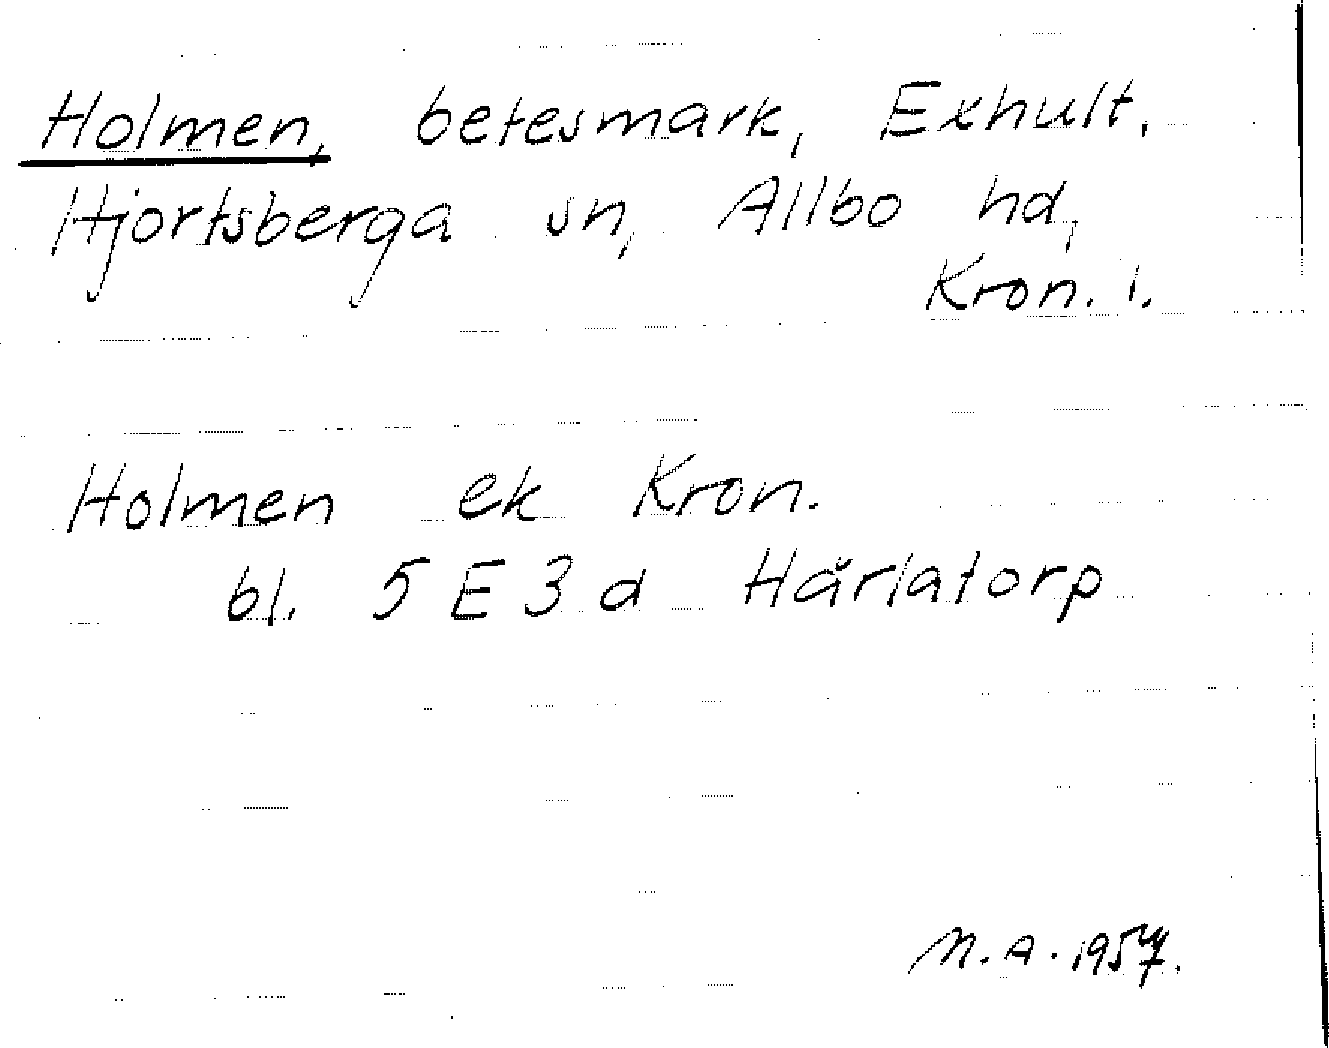 Holmen, betesmark, Exhult.
Hjortsberga sn, Allbo hd,
Kron. l.
Holmen ek Kron.
bl. 5 E 3 d Härlatorp
N. A. 1957.